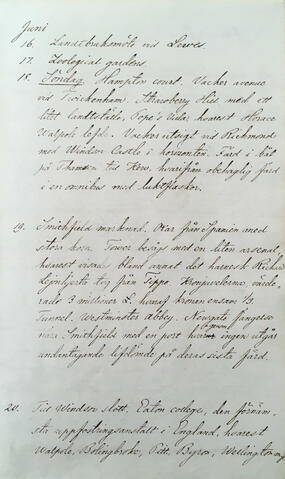 Juni
16. Landtbruksmöte vid Lewes.
17. Zoological gardens.
18. Söndag. Hampton court. Vacker avenue
vid Twickenham. Strawberry Hill med ett
litet landtställe, Pope's Villa, hvarest Horace
Walpole lefde. Vacker utsigt vid Richmond
med Windsor Castle i horizonten. Färd i båt
på Themsen till Kew, hvarifrån obehaglig färd
i en omnibus med luktflaskor.
19. Smithfield marknad. Oxar från Spanien med
stora horn. Tower besågs med en liten arsenal,
hvarest visades bland annat det harnesk Richard
Lejonhjerta tog från Tippo. Kronjuvelerna, värde-
rade 3 millioner £. hvaraf kronan ensam 1/3.
Tunnel. Westminster Abbey. Newgate fängelse
nära Smithfield med en port hvar igenom ingen utgår
undantagande lifdömde på deras sista färd.
20. Till Windsor slott. Eaton college, den förnäm-
sta uppfostringsanstalt i England, hvarest
Walpole, Bolingbroke, Pitt, Byron, Wellington